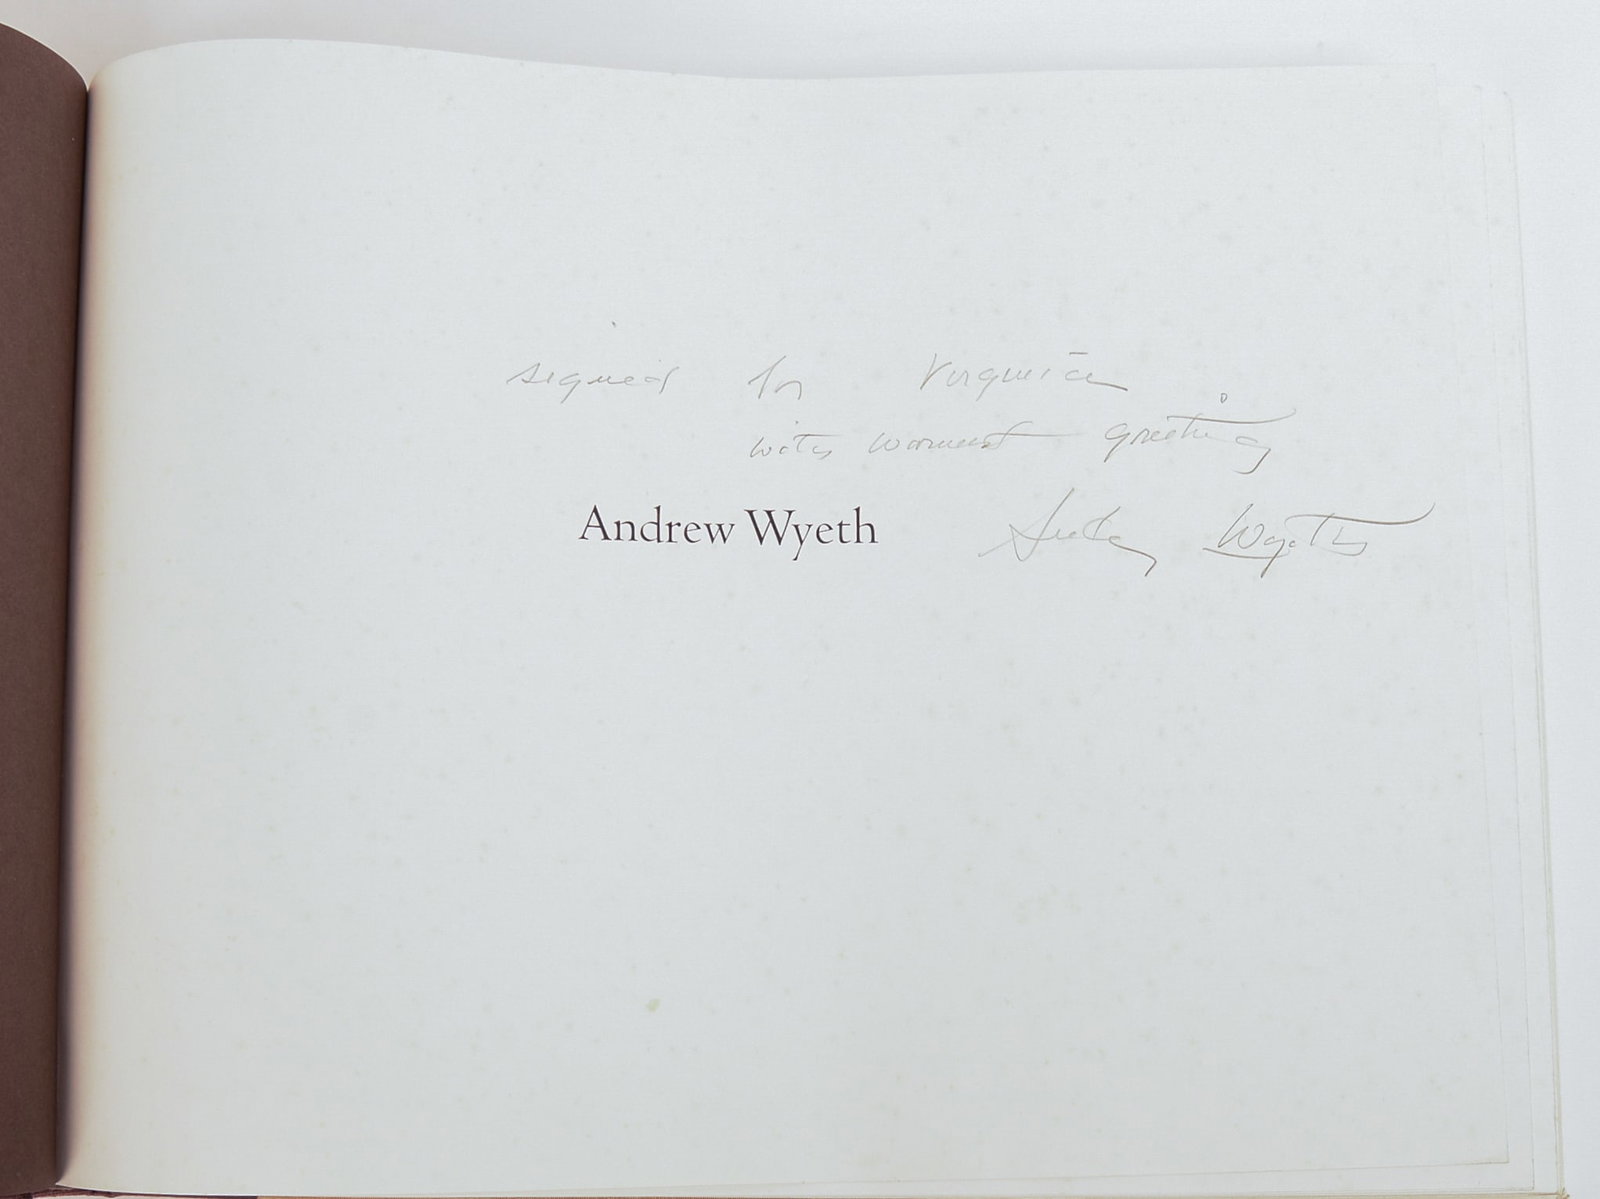 signed for Virginia
with warmest greeting
Andrew Wyeth
Andrew Wyeth